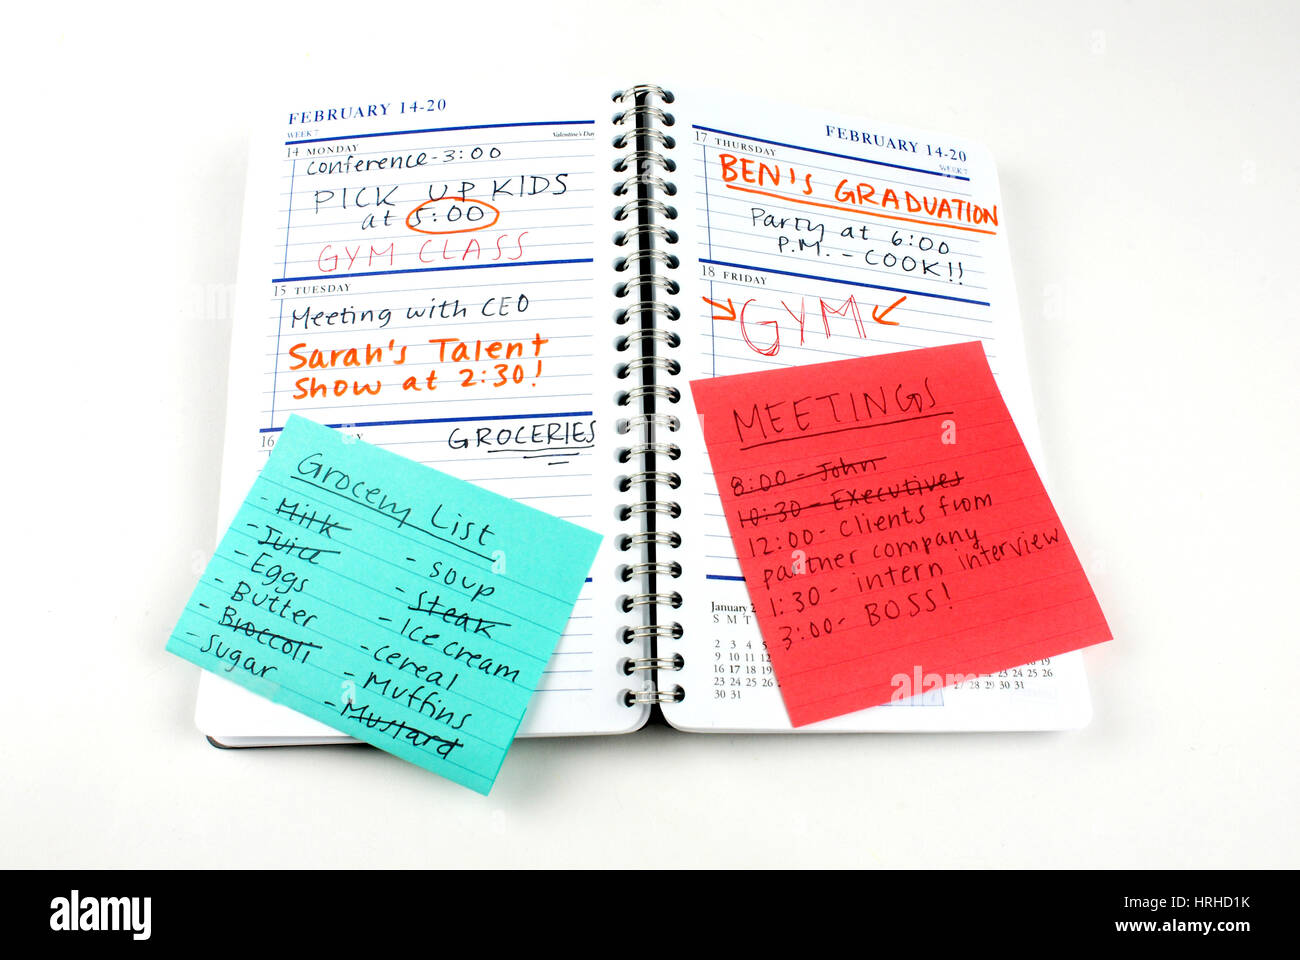 FEBRUARY 14-20
WEEK 7
Valentine's Day
14 MONDAY
Conference - 3:00
PICK UP KIDS
at 5:00
GYM CLASS
15 TUESDAY
Meeting with CEO
Sarah's Talent
Show at 2:30!
16
GROCERIES
Grocery List
- Milk
- Juice
- Eggs
- Butter
- Broccoli
- Sugar
- Soup
- Steak
- Ice cream
- Cereal
- Muffins
- Mustard
FEBRUARY 14-20
WEEK 7
17 THURSDAY
BEN'S GRADUATION
Party at 6:00
P.M. - COOK!!
18 FRIDAY
GYM
MEETINGS
8:00 - John
10:30 - Executives
12:00 - Clients from
partner company
1:30 - intern interview
3:00 - BOSS!
January
S M T
2 3 4
9 10 11
16 17 18
23 24 25
30 31
27 28 29 30 31
alamy
Image ID: HRHD1K
www.alamy.com